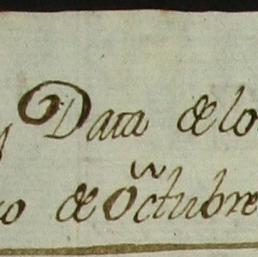 Data de lo
de Octubre